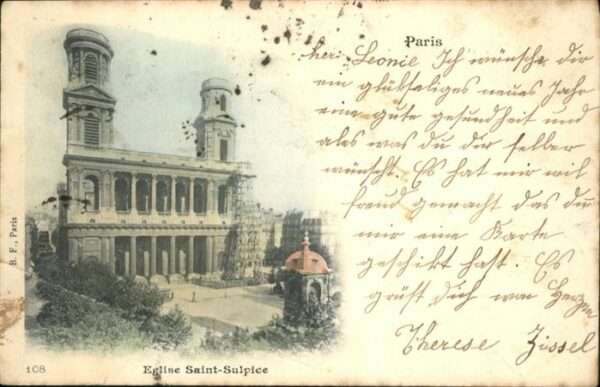 Paris
her: Leonie Ich wünsche dir
ein glükseliges neues Jahr
eine gute gesundheit und
ales was du dir selber
wünscht. Es hat mir vil
freud gemacht das du
mir eine Karte
geschikt hast. Es
grüst Dich von Herzen
Therese Zissel
B. F., Paris
108
Eglise Saint-Sulpice